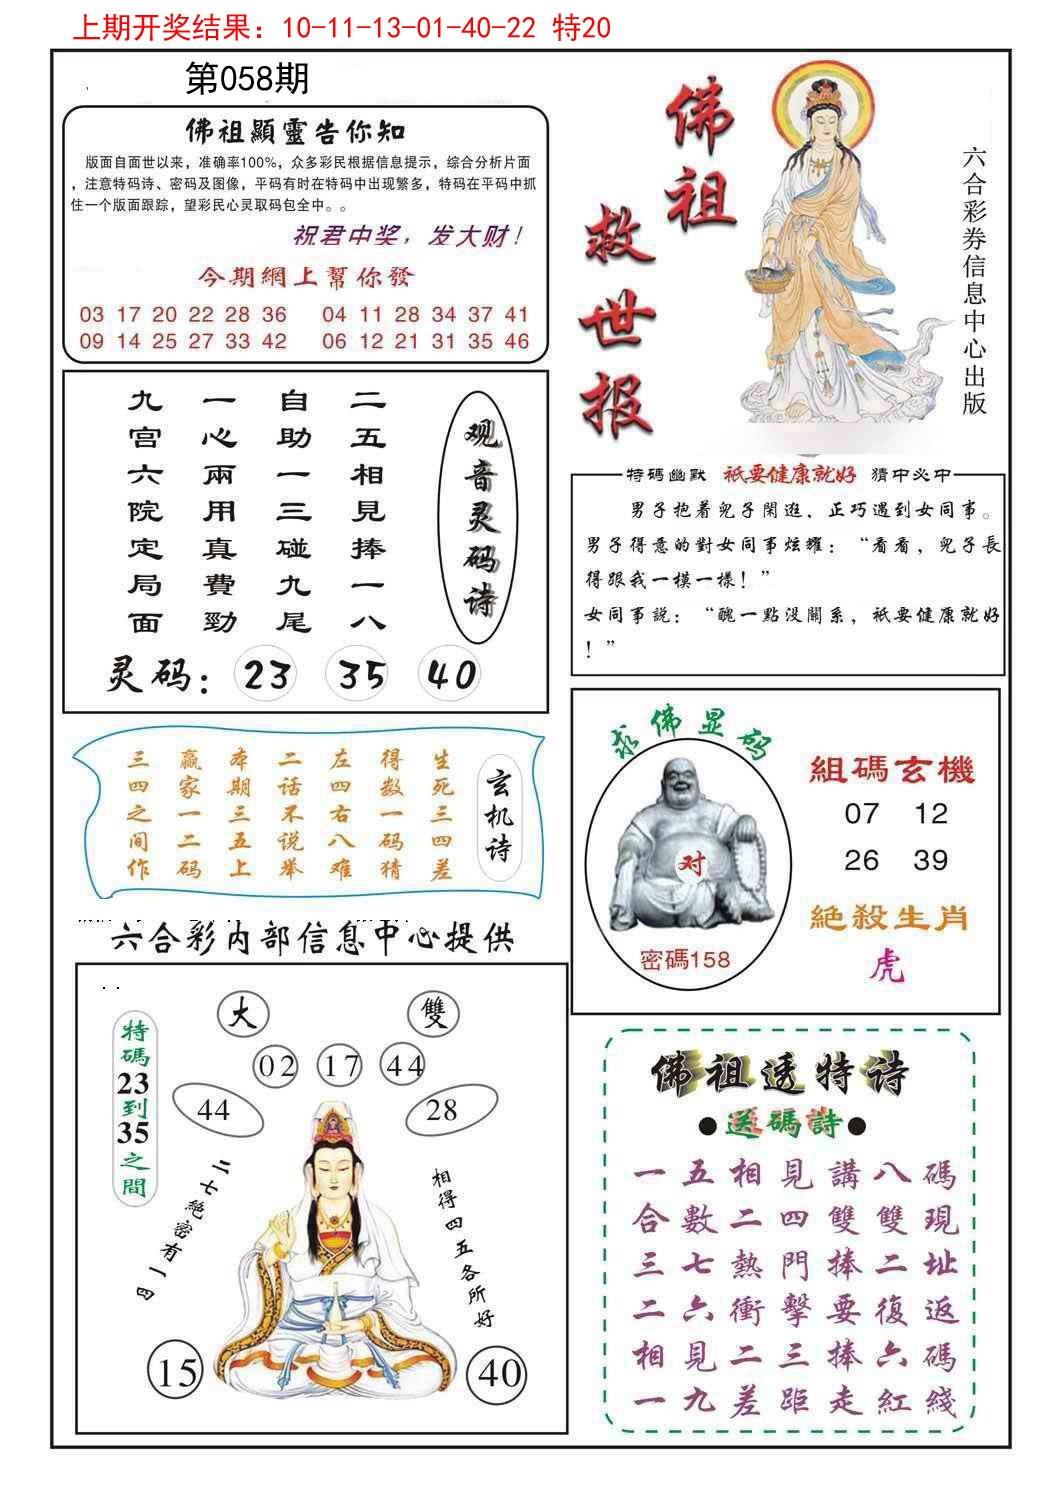 上期开奖结果：10-11-13-01-40-22 特20
第058期
佛祖顯靈告你知
版面自面世以来，准确率100%，众多彩民根据信息提示，综合分析片面
，注意特码诗、密码及图像，平码有时在特码中出现繁多，特码在平码中抓
住一个版面跟踪，望彩民心灵取码包全中。。
祝君中奖，发大财！
今期網上幫你發
03 17 20 22 28 36 04 11 28 34 37 41
09 14 25 27 33 42 06 12 21 31 35 46
佛祖
救世报
六合彩券信息中心出版
观音灵码诗
二五相見捧一八
自助一三碰九尾
一心兩用真費勁
九宫六院定局面
灵码：23 35 40
特碼幽默 祇要健康就好 猜中必中
男子抱着兒子閑逛，正巧遇到女同事。
男子得意的對女同事炫耀：“看看，兒子長
得跟我一模一樣！”
女同事説：“醜一點没關系，祇要健康就好
！”
玄机诗
生死三四差
得数一码猜
左四右八难
二话不说举
本期三五上
赢家一二码
三四之间作
求佛显码
对
密碼158
組碼玄機
07 12
26 39
絶殺生肖
虎
六合彩内部信息中心提供
大 雙
02 17 44
44 28
特碼23到35之間
二七絶密有一四
相得四五各所好
15 40
佛祖透特诗
●送碼詩●
一五相見講八碼
合數二四雙雙現
三七熱門捧二址
二六衝擊要復返
相見二三捧六碼
一九差距走紅綫